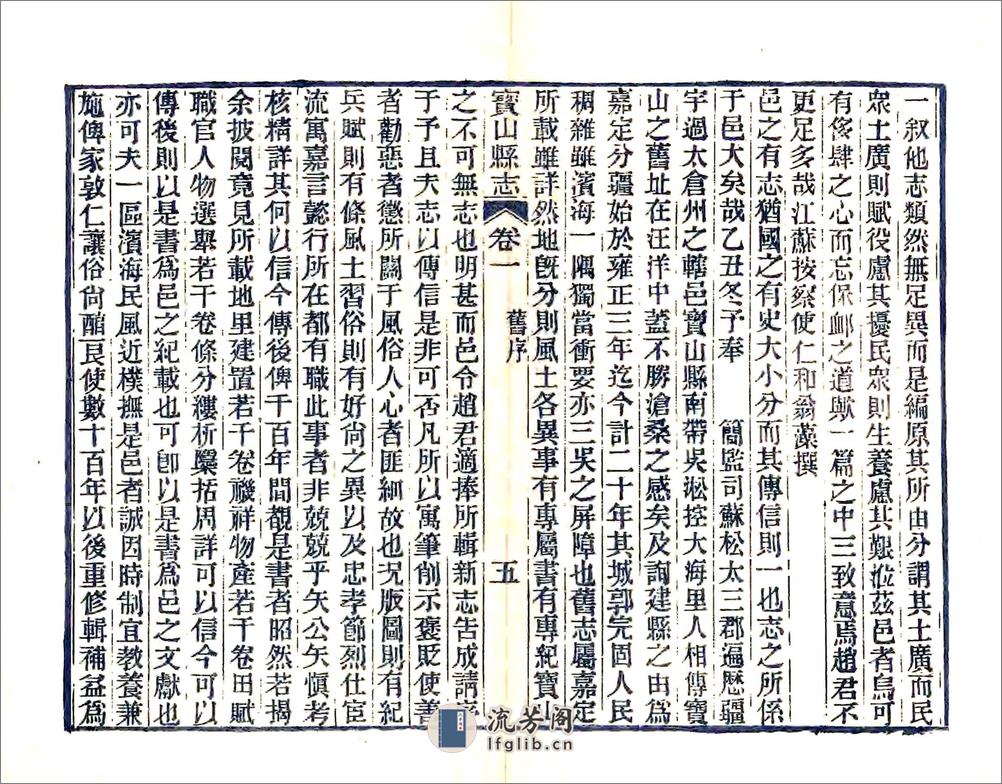 一叙他志類然無足異而是編原其所由分謂其土廣而民
衆土廣則賦役慮其擾民衆則生養慮其艱涖茲邑者烏可
有侈肆之心而忘保卹之道歟一篇之中三致意焉趙君不
更足多哉江蘇按察使仁和翁藻撰
邑之有志猶國之有史大小分而其傳信則一也志之所係
于邑大矣哉乙丑冬予奉 簡監司蘇松太三郡遍歷疆
宇過太倉州之轄邑寶山縣南帶吳淞控大海里人相傳寶
山之舊址在汪洋中蓋不勝滄桑之感矣及詢建縣之由為
嘉定分疆始於雍正三年迄今計二十年其城郭完固人民
稠雜雖濱海一隅獨當衝要亦三吳之屏障也舊志屬嘉定
所載雖詳然地旣分則風土各異事有專屬書有專紀寶山
寶山縣志 卷一 舊序 五
之不可無志也明甚而邑令趙君適捧所輯新志告成請序
于予且夫志以傳信是非可否凡所以寓筆削示褒貶使善
者勸惡者懲所關于風俗人心者匪細故也况版圖則有紀
兵賦則有條風土習俗則有好尚之異以及忠孝節烈仕宦
流寓嘉言懿行所在都有職此事者非兢兢乎矢公矢慎考
核精詳其何以信今傳後俾千百年間覩是書者昭然若揭
余披閱竟見所載地里建置若干卷禨祥物產若干卷田賦
職官人物選舉若干卷條分縷析檃括周詳可以信今可以
傳後則以是書爲邑之紀載也可卽以是書爲邑之文獻也
亦可夫一區濱海民風近樸撫是邑者誠因時制宜教養兼
施俾家敦仁讓俗尚醕良使數十百年以後重修輯補益爲
流芳阁
lfglib.cn